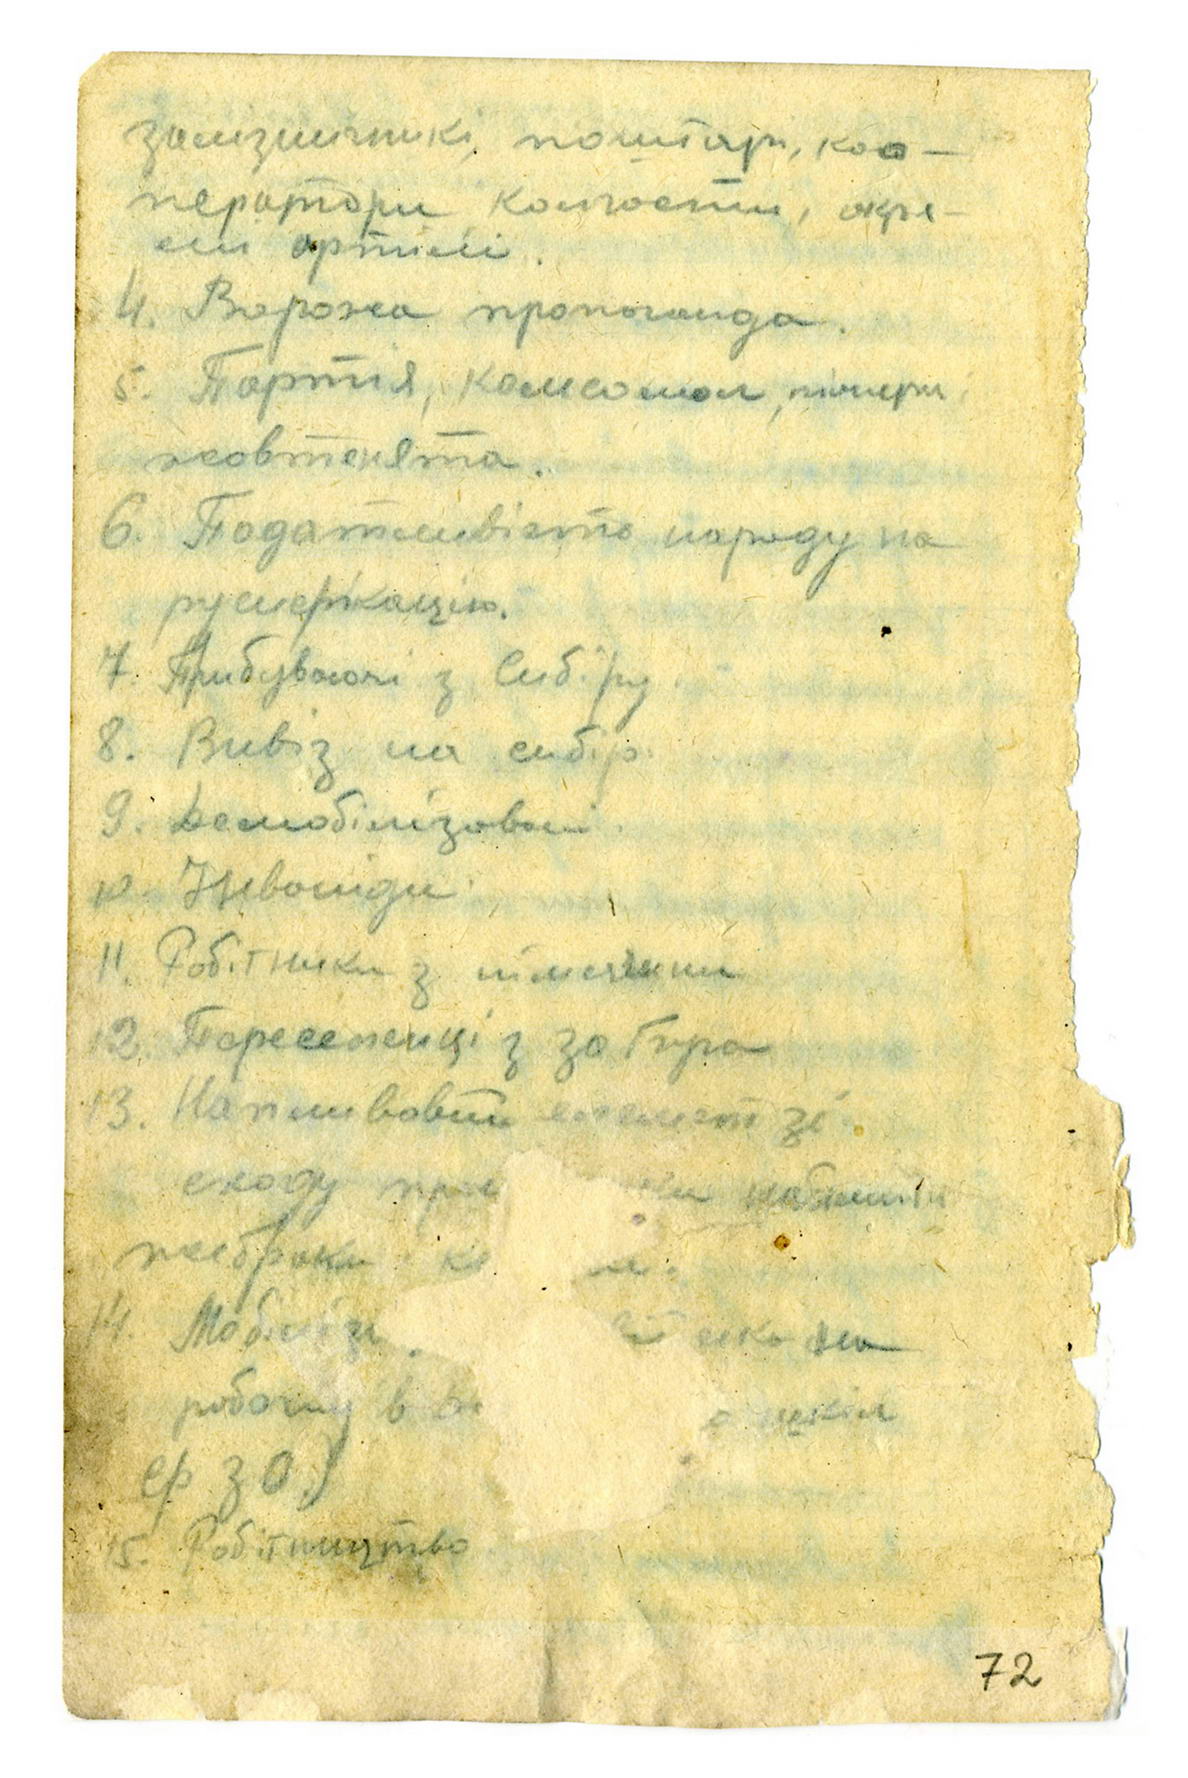 залізничники, поштарі, коо-
ператори колгоспи, окре-
мі артілі.
4. Ворожа пропоганда.
5. Партія, комсомол, піонери
жовтенята.
6. Податливість народу на
русифікацію.
7. Прибуваючі з Сибіру
8. Вивіз на сибір.
9. Демобілізовані.
10. Інваліди.
11. Робітники з німеччини
12. Переселенці з за Буга
13. Напливовий елемент зі
сходу
жебраки
14.
робочих в шкіл
ф з О.)
15. Робітництво
72